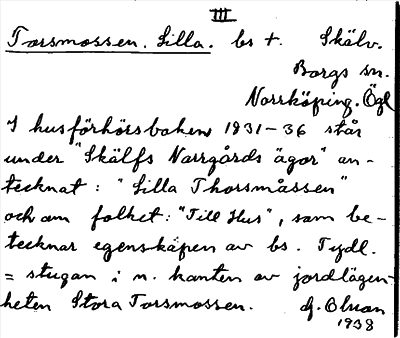 III
Torsmossen. Lilla. bs t. Skälv.
Borgs sn.
Norrköping. Ögl
I husförhörsboken 1831-36 står
under "Skälfs Norrgårds ägor" an-
tecknat: "Lilla Thorsmåssen"
och om folket: "Till Hus", som be-
tecknar egenskapen av bs. Tydl.
= stugan i n. kanten av jordlägen-
heten Stora Torsmossen. G. Olson.
1938